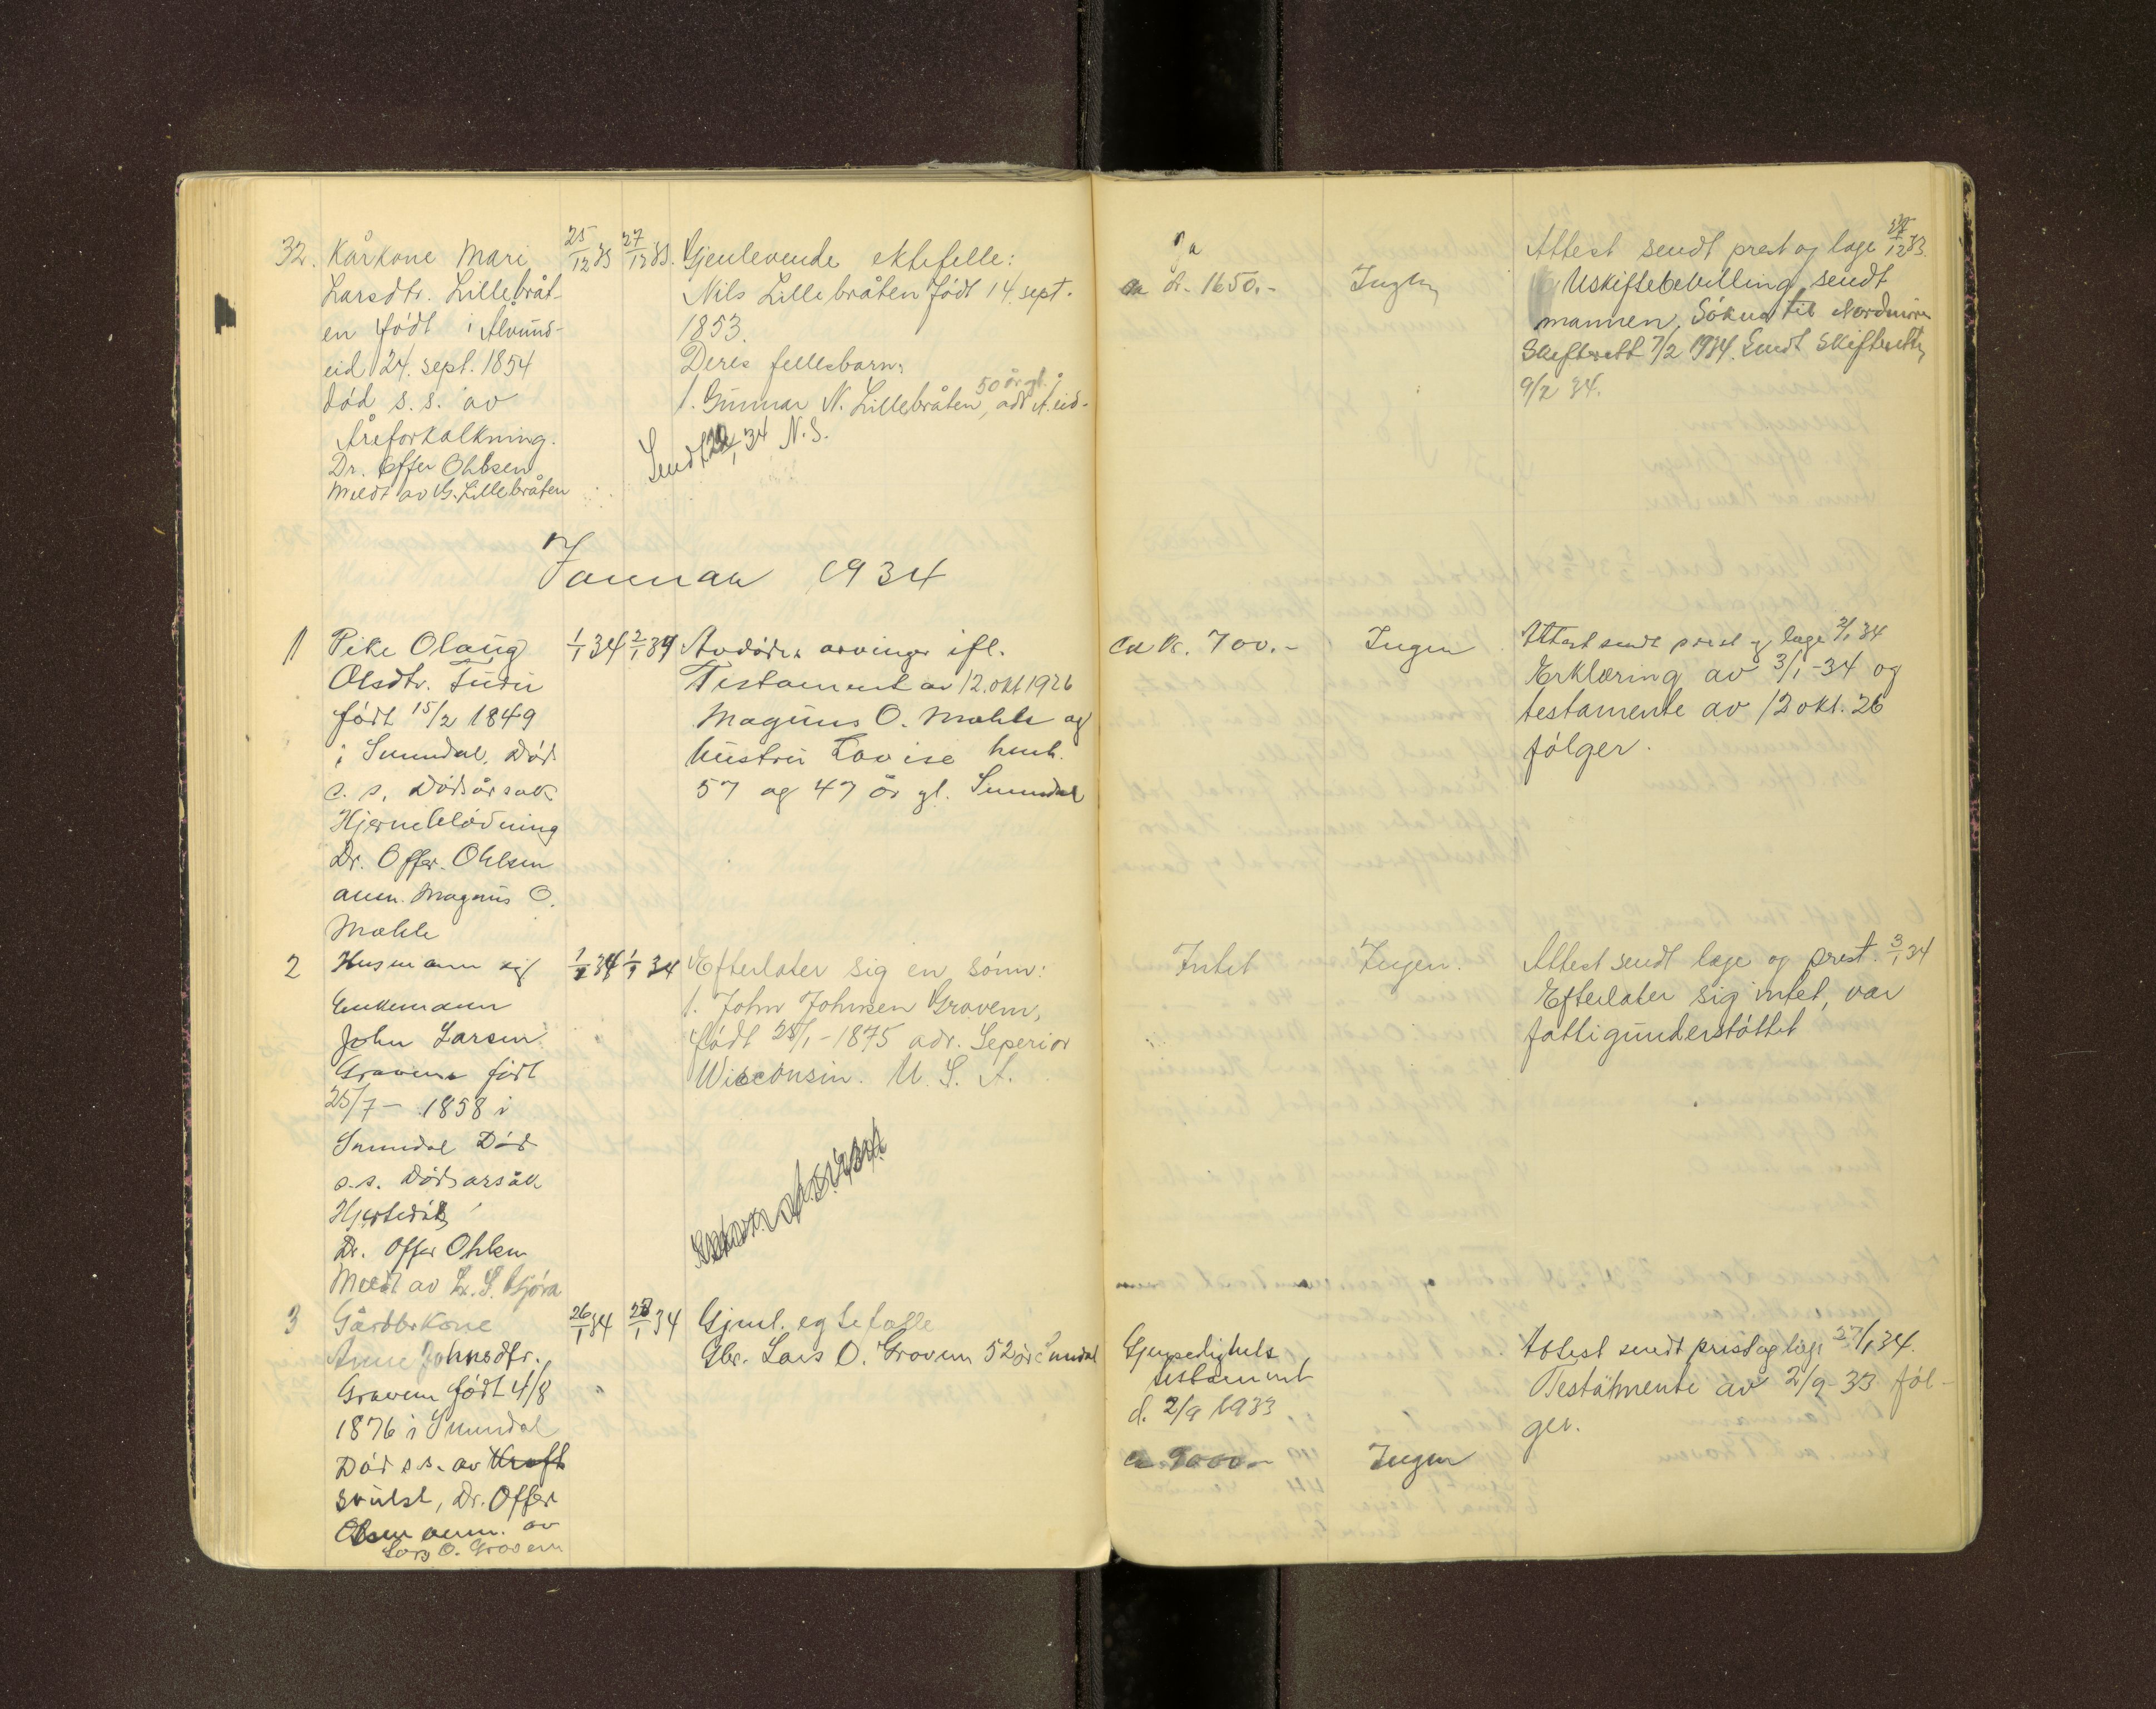 32. Kårkone Mari 25/12 33 27/12 33. Gjenlevende ektefelle: Ja Attest sendt prest og læge 27/12 33.
Larsdtr. Lillebråt- Nils Lillebråten født 14. sept. ca kr. 1650.- Ingen Uskiftebevilling sendt
en født i Ålvund- 1853. mannen. Søknad til Nordmøre
eid 24. sept. 1854 Deres fellesbarn: Skifterett 7/2 1934. Sendt Skifteretten
død s. s. av 1. Gunnar N. Lillebråten, 50 år gl. adr Å.eid. 9/2 34.
Åreforkalkning. Sendt 22/1 34 N.S.
Dr. Offer Ohlsen
Meldt av G. Lillebråten
Januar 1934
1 Pike Olaug 1/1 34 2/1 34 Avdødes arvinger ifl. ca kr. 700.- Ingen Attest sendt prest og læge 2/1 34
Olsdtr. Furu Testament av 12. okt 1926 Erklæring av 3/1-34 og
født 15/2 1849 Magnus O. Mæhle og testamente av 12 okt. 26
i Sunndal. Død hustru Lovise henh. følger.
s. s. Dødsårsak 57 og 47 år gl. Sunndal
Hjerneblødning
Dr. Offer Ohlsen
anm. Magnus O.
Mæhle
2 Husmann og 1/1 34 34 Efterlater sig en sønn: Intet Ingen. Attest sendt læge og prest. 3/1 34
Enkemann 1. John Johnsen Gravem, Efterlater sig intet, var
John Larsen født 28/1-1875 adr. Seperior fattigunderstøttet
Gravem født Wisconsin. U. S. A.
25/7- 1858 i
Sunndal Død
s.s. Dødsarsåk
Hjerteslag
Dr. Offer Ohlsen
Meldt av L. S. Gjøra
3 Gårdbrkone 26/1 34 27/1 34 Gjenl. egtefælle
Anne Johnsdtr. Gbr. Lars O. Gravem 52 år Sunndal Gjensedighets Attest sendt prest og læge 27/1 34.
Gravem født 4/8 testament Testamente av 2/9-33 føl-
1876 i Sunndal d. 2/9 1933 ger.
Død s.s. av Kreft ca 9000.- Ingen
svulst, Dr. Offer
Olsen anm. av
Lars O. Gravem